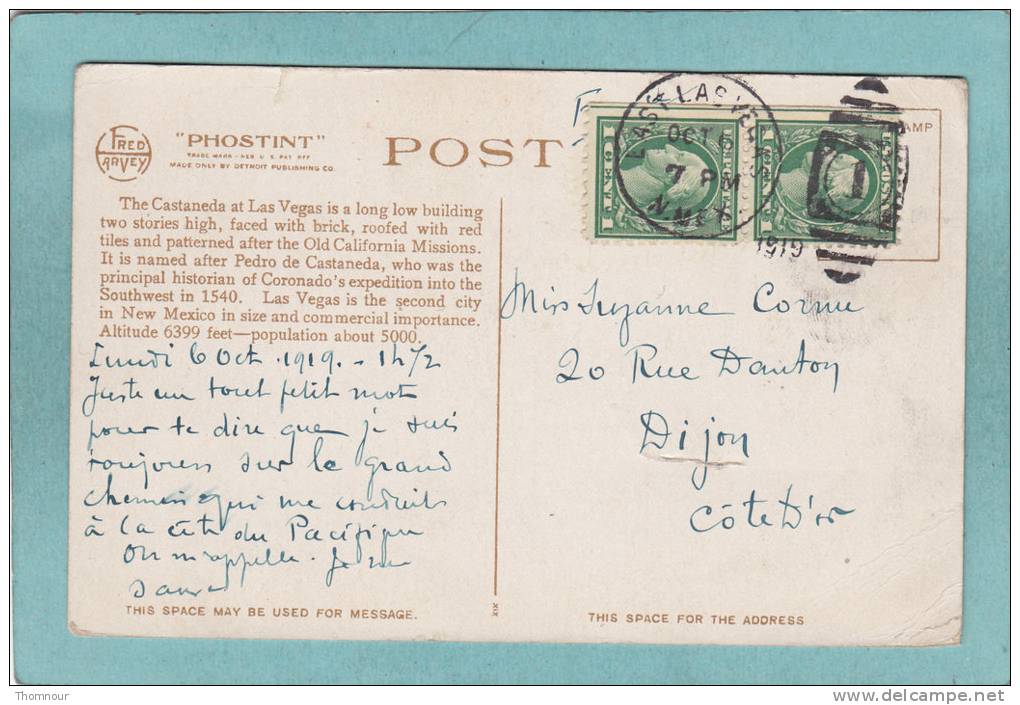 FRED HARVEY
"PHOSTINT"
TRADE MARK - REG U.S. PAT. OFF
MADE ONLY BY DETROIT PUBLISHING CO.
POST
F
EAST LAS VEGAS
OCT 6
7 PM
N. MEX.
1919
1
1 CENT 1
AMP
The Castaneda at Las Vegas is a long low building
two stories high, faced with brick, roofed with red
tiles and patterned after the Old California Missions.
It is named after Pedro de Castaneda, who was the
principal historian of Coronado's expedition into the
Southwest in 1540. Las Vegas is the second city
in New Mexico in size and commercial importance.
Altitude 6399 feet—population about 5000.
Lundi 6 Oct. 1919. - 1h 1/2
Juste un tout petit mot
pour te dire que je suis
toujours sur le grand
chemin qui me conduit
à la côte du Pacifique
On m'appelle. Je me
sauve
THIS SPACE MAY BE USED FOR MESSAGE.
XIX
Miss Suzanne Cornu
20 Rue Danton
Dijon
Côte D'or
THIS SPACE FOR THE ADDRESS
Thomnour
www.delcampe.net